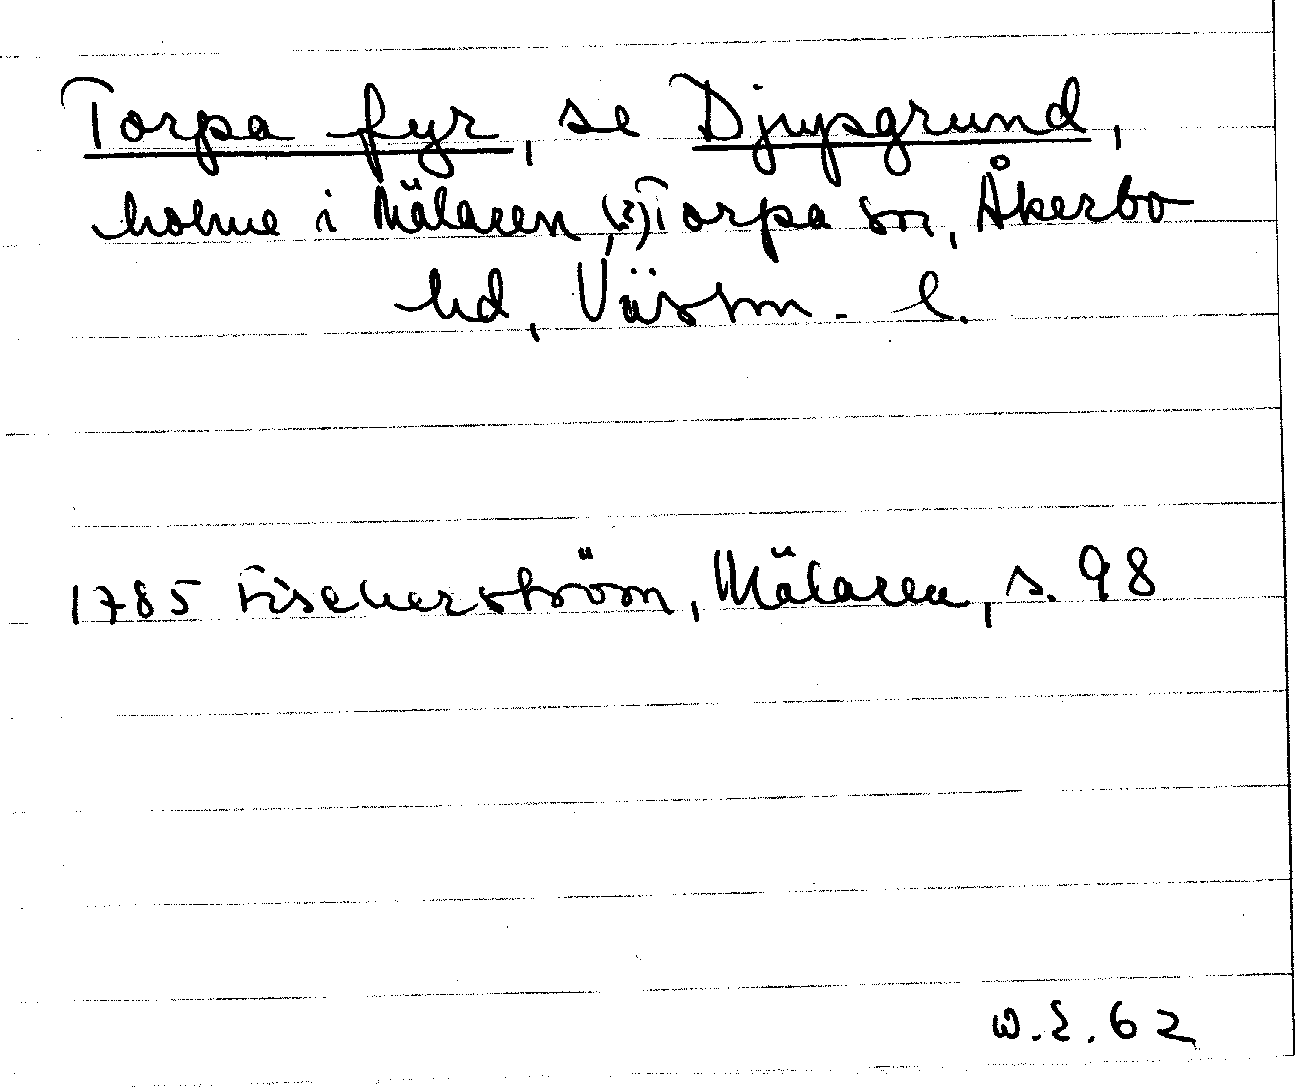 Torpa fyr, se Djupsgrund,
holme i Mälaren, (?) Torpa sn, Åkerbo
hd, Västm. l.
1785 Fischerström, Mälaren, s. 98
W.E. 62